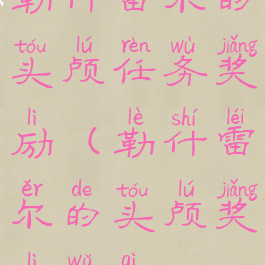 勒什雷尔的
tóu lú rèn wù jiǎng
头颅任务奖
lì lè shí léi
励（勒什雷
ěr de tóu lú jiǎng
尔的头颅奖
lì wǔ qì